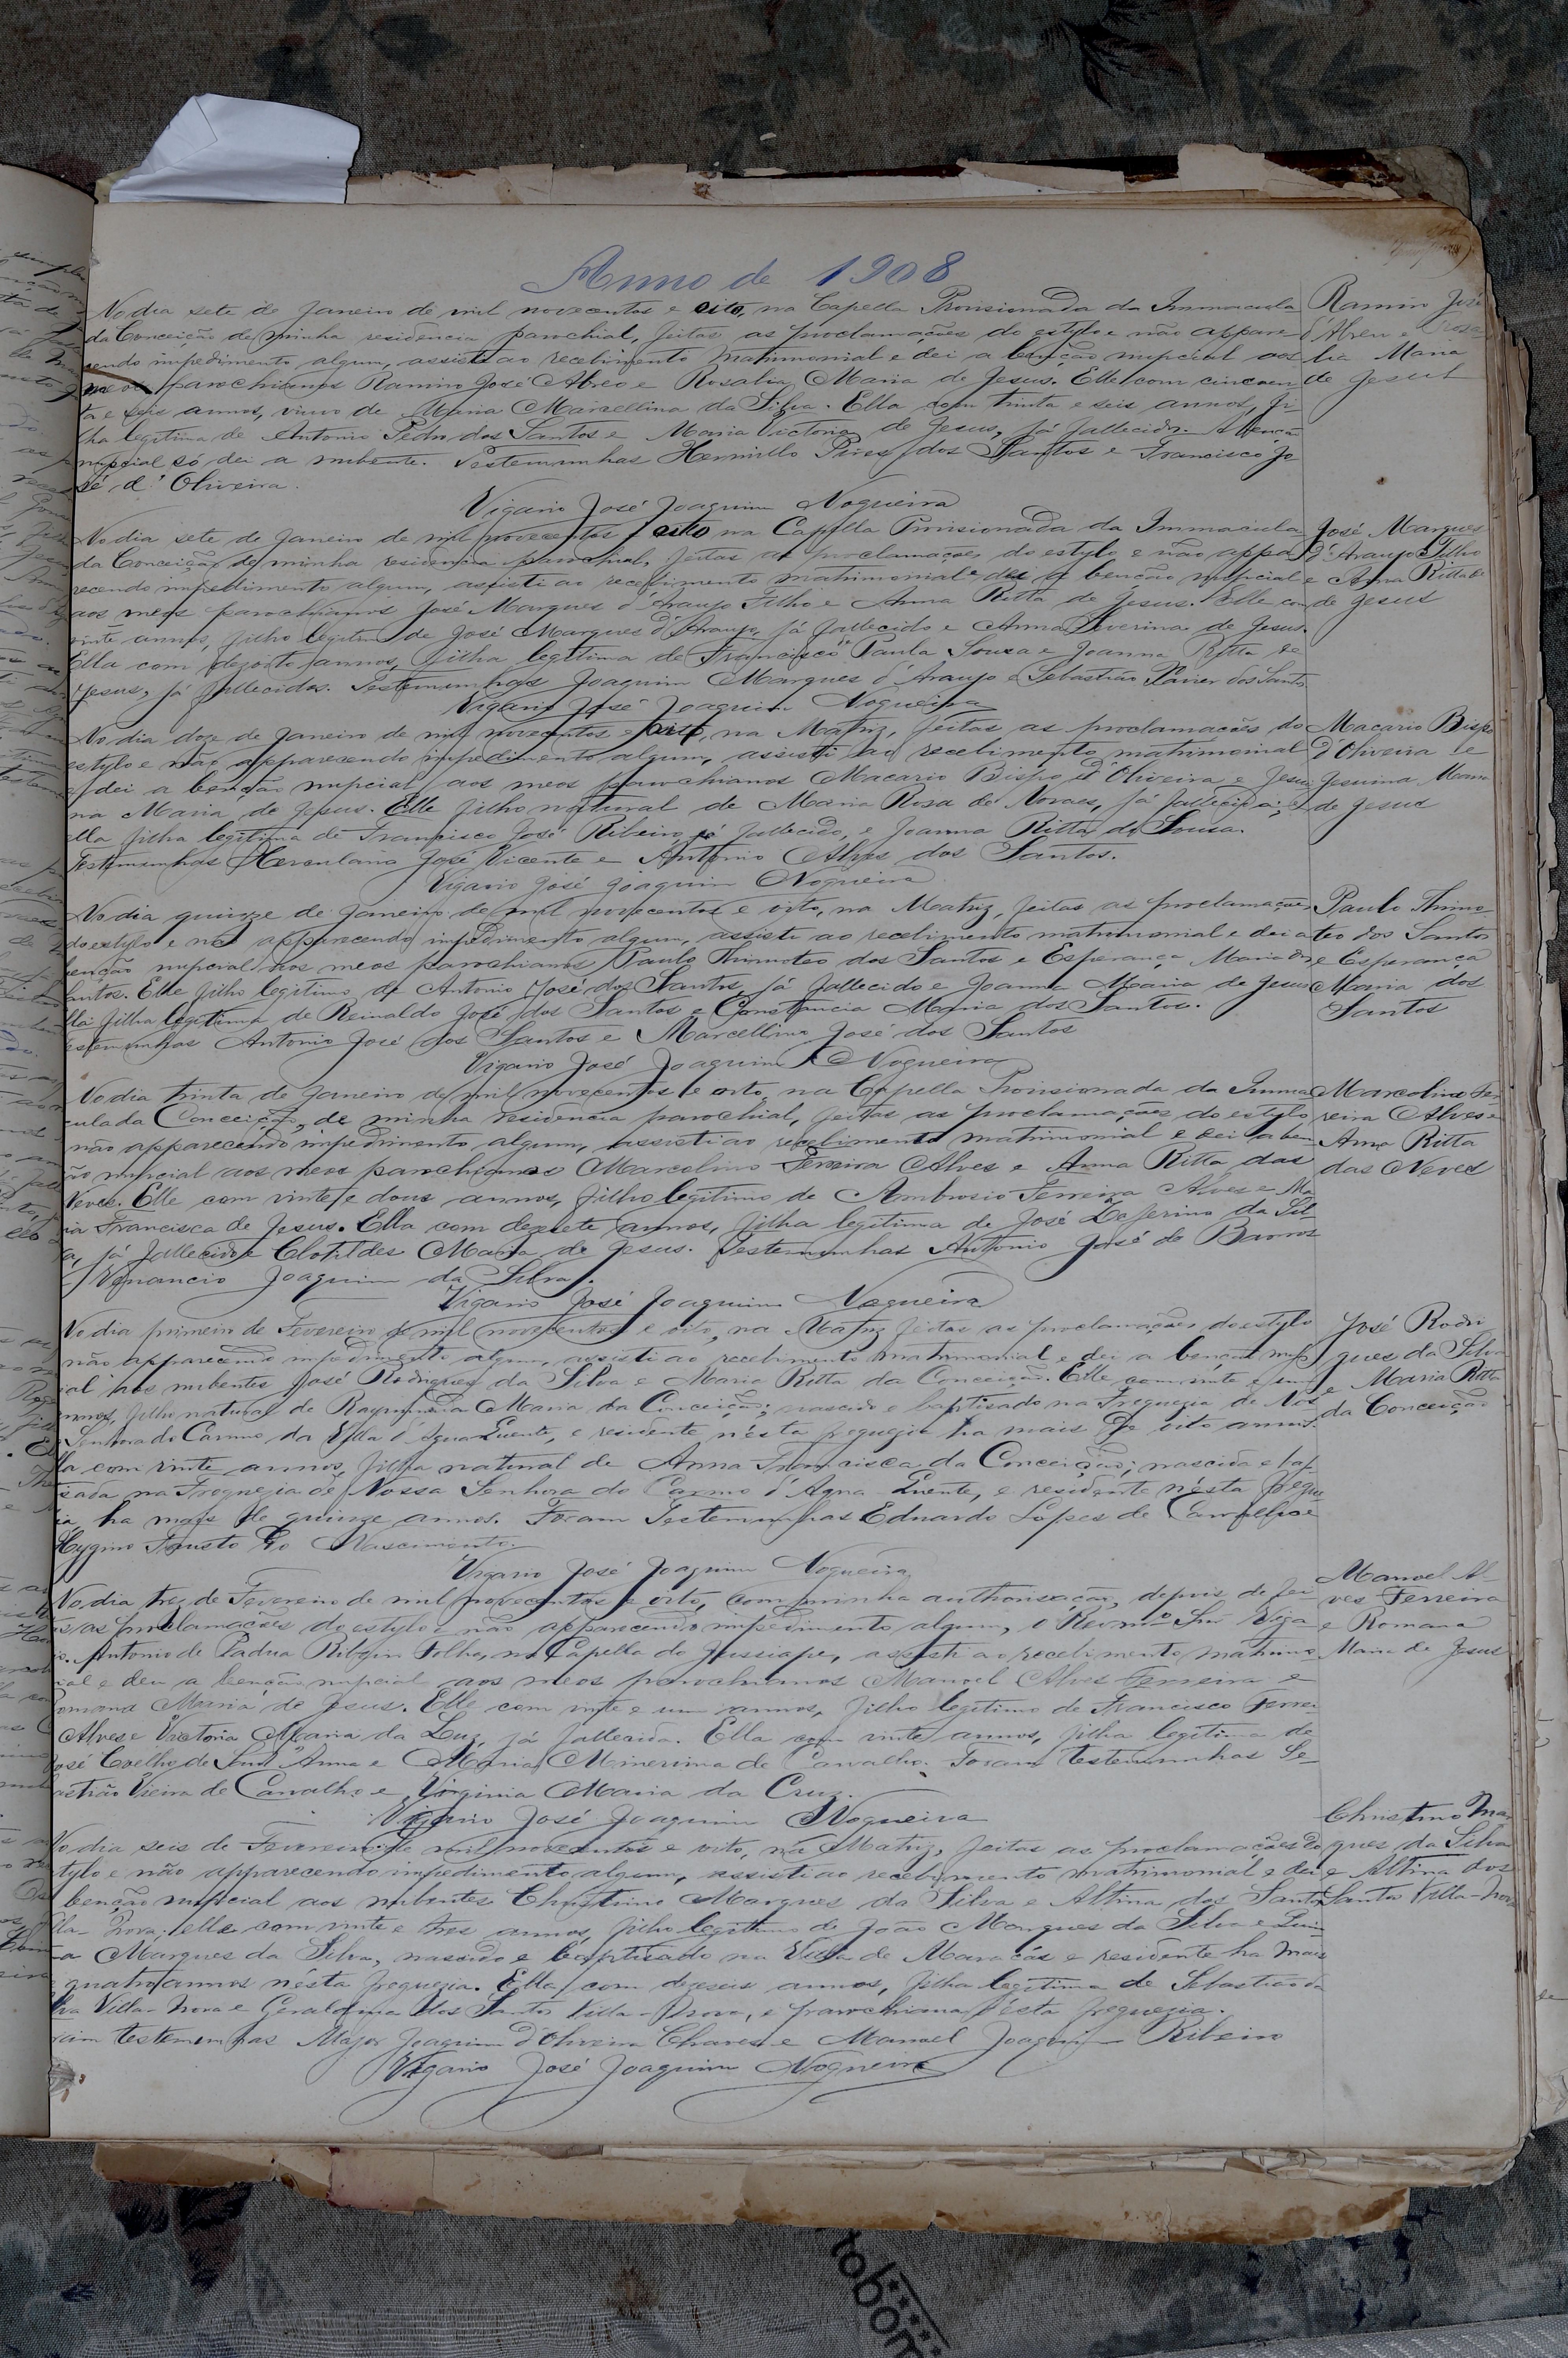 Anno de 1908
No dia sete de Janeiro de mil novecentos e oito, na Capella Provisionada da Immacula
da Conceição de minha residencia parochial, feitas as proclamações do estylo e não appare-
cendo impedimento algum, assisti ao recebimento matrimonial e dei a benção nupcial aos
meos parochianos Ramiro José Abreo e Rosalia Maria de Jesus. Elle com cincoen
ta e seis annos, viuvo de Maria Marcellina da Silva. Ella com trinta e seis annos, fi-
lha legitima de Antonio Pedro dos Santos e Maria Victoria de Jesus, já fallecidos. A bençã
nupcial só dei a nubente. Testemunhas Hermillo Pires dos Santos e Francisco Jo
sé d'Oliveira.
Vigario José Joaquim Nogueira
Ramiro José
d'Abreu e Rosa-
lia Maria
de Jesus
No dia sete de Janeiro de mil novecentos e oito na Capella Provisionada da Immacula
da Conceição de minha residencia parochial, feitas as proclamações do estylo e não appa
recendo impedimento algum, assisti ao recebimento matrimonial e dei a benção nupcial
aos meos parochianos José Marques d'Araujo Filho e Anna Ritta de Jesus. Elle com
vinte annos, filho legitimo de José Marques d'Araujo, já fallecido e Anna Severina de Jesus.
Ella com dezoito annos, filha legitima de Francisco Paula Souza e Joanna Ritta de
Jesus, já fallecidos. Testemunhas Joaquim Marques d'Araujo e Sebastião Xavier dos Santos
Vigario José Joaquim Nogueira
José Marques
d'Araujo Filho
e Anna Ritta
de Jesus
No dia doze de Janeiro de mil novecentos e oito, na Matriz, feitas as proclamações do
estylo e não apparecendo impedimento algum, assisti ao recebimento matrimonial
e dei a benção nupcial aos meos parochianos Macario Bispo d'Oliveira e Jesui
na Maria de Jesus. Elle filho natural de Maria Rosa de Novaes, já fallecida; e
ella filha legitima de Francisco José Ribeiro, já fallecido, e Joanna Ritta de Sousa.
Testemunhas Herculano José Vicente e Antonio Alves dos Santos.
Vigario José Joaquim Nogueira
Macario Bispo
d'Oliveira e
Jesuina Maria
de Jesus
No dia quinze de Janeiro de mil novecentos e oito, na Matriz, feitas as proclamações
do estylo e não apparecendo impedimento algum, assisti ao recebimento matrimonial e dei a
benção nupcial aos meos parochianos Paulo Thimoteo dos Santos e Esperança Maria dos
Santos. Elle filho legitimo de Antonio José dos Santos, já fallecido e Joanna Maria de Jesus
Ella filha legitima de Reinaldo José dos Santos e Constancia Maria dos Santos.
Testemunhas Antonio José dos Santos e Marcellino José dos Santos
Vigario José Joaquim Nogueira
Paulo Thimo-
teo dos Santos
e Esperança
Maria dos
Santos
No dia trinta de Janeiro de mil novecentos e oito, na Capella Provisionada da Imma
culada Conceição, de minha residencia parochial, feitas as proclamações do estylo
não apparecendo impedimento algum, assisti ao recebimento matrimonial e dei a ben
ção nupcial aos meos parochianos Marcolino Ferreira Alves e Anna Ritta das
Neves. Elle com vinte e dous annos, filho legitimo de Ambrosio Ferreira Alves e Ma
ria Francisca de Jesus. Ella com dezesete annos, filha legitima de José Zeferino da Sil
va, já fallecido e Clotildes Maria de Jesus. Testemunhas Antonio José de Barros
e Venancio Joaquim da Silva.
Vigario José Joaquim Nogueira
Marcolino Fer
reira Alves e
Anna Ritta
das Neves
No dia primeiro de Fevereiro de mil novecentos e oito, na Matriz feitas as proclamações do estylo
não apparecendo impedimento algum, assisti ao recebimento matrimonial e dei a benção nup
cial aos nubentes José Rodrigues da Silva e Maria Ritta da Conceição. Elle com vinte e um
annos, filho natural de Raymunda Maria da Conceição; nascido e baptisado na Freguezia de Nos
Senhora do Carmo da Villa d'Agua Quente, e residente n'esta freguezia ha mais de oito annos.
Ella com vinte annos, filha natural de Anna Francisca da Conceição; nascida e bap
tisada na Freguezia de Nossa Senhora do Carmo d'Agua Quente, e residente n'esta fregue
zia ha mais de quinze annos. Foram Testemunhas Eduardo Lopes de Carvalho e
Hygino Fausto do Nascimento.
Vigario José Joaquim Nogueira
José Rodri
gues da Silva
e Maria Ritta
da Conceição
No dia tres de Fevereiro de mil novecentos e oito, com minha authorisação, depois de fei
tas as proclamações do estylo e não apparecendo impedimento algum, o Revmº Snr Viga
rio Antonio de Padua Folha, na Capella do Jussiape, assisti ao recebimento matrimo
nial e deu a benção nupcial aos meos parochianos Manoel Alves Ferreira e
Romana Maria de Jesus. Elle com vinte e um annos, filho legitimo de Francisco Ferrei
Alves e Victoria Maria da Luz, já fallecida. Ella com vinte annos, filha legitima de
José Coelho de Sant'Anna e Maria Minervina de Carvalho. Foram testemunhas Se-
bastião Vieira de Carvalho e Virginia Maria da Cruz.
Vigario José Joaquim Nogueira
Manoel Al-
ves Ferreira
e Romana
Maria de Jesus
No dia seis de Fevereiro de mil novecentos e oito, na Matriz, feitas as proclamações do
estylo e não apparecendo impedimento algum, assisti ao recebimento matrimonial e dei
benção nupcial aos nubentes Christino Marques da Silva e Altina dos Santos
Villa-Nova; elle com vinte e tres annos, filho legitimo de João Marques da Silva e
Marques da Silva, nascido e baptisado na Villa de Maracás e residente ha mais
quatro annos n'ésta freguezia. Ella com dezeseis annos, filha legitima de Sebastião da
Silva Villa-Nova e Geraldina dos Santos Villa-Nova, e parochiana d'ésta freguezia.
Foram testemunhas Major Joaquim d'Oliveira Chaves e Manoel Joaquim Ribeiro
Vigario José Joaquim Nogueira
Christino Mar
ques da Silva
e Altina dos
Santos Villa-Nova